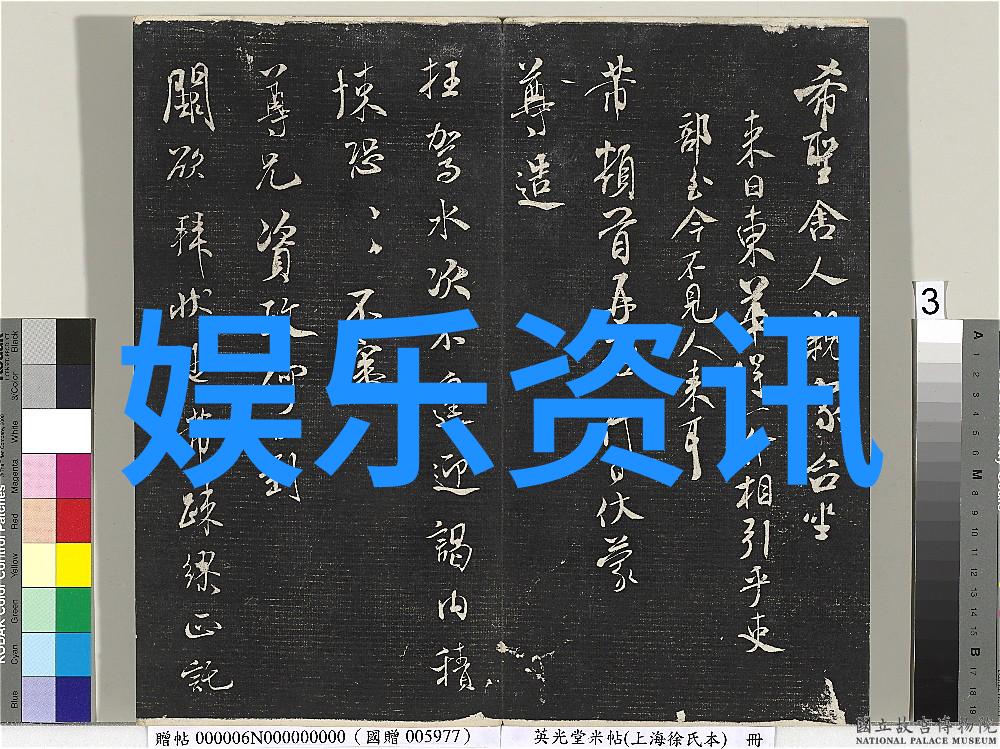 希聖舍人親家台坐
來日東華
相引乎吏
部至今不見人來耳
芾頓首再
伏蒙
尊造
枉駕水次不
迎謁內積
悚恐
尊兄資政
闕欲拜狀
疎繆正託
娱乐资讯
3
贈帖 000006N000000000 (國贈 005977)
英光堂米帖(上海徐氏本) 冊
國立故宮博物院
NATIONAL PALACE MUSEUM
Black
3/Color
White
Magenta
Red
Yellow
Green
Cyan
Blue
A
1
2
3
4
5
6
M
8
9
10
11
12
13
14
15
B
17
18
19